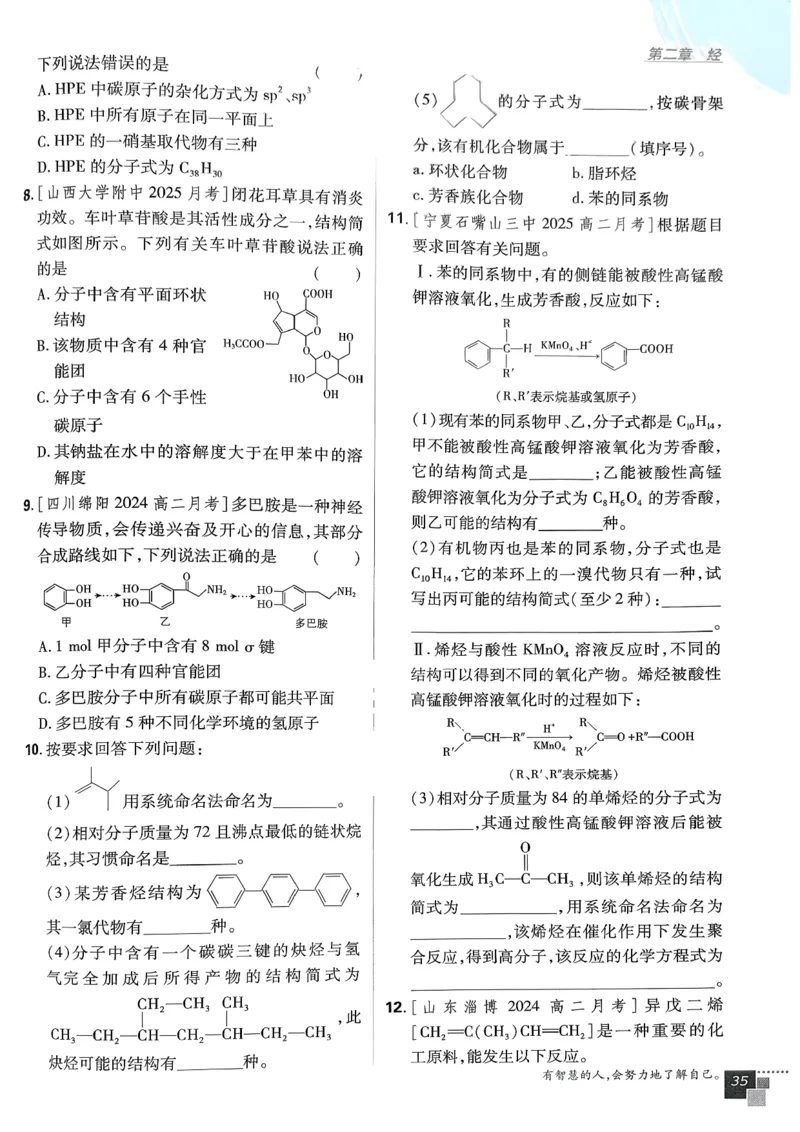 第二章 烃
下列说法错误的是 ( )
A. HPE 中碳原子的杂化方式为 sp²、sp³
B. HPE 中所有原子在同一平面上
C. HPE 的一硝基取代物有三种
D. HPE 的分子式为 C₃₈H₃₀
8. [山西大学附中 2025 月考]闭花耳草具有消炎
功效。车叶草苷酸是其活性成分之一,结构简
式如图所示。下列有关车叶草苷酸说法正确
的是 ( )
A. 分子中含有平面环状
结构
B. 该物质中含有 4 种官
能团
C. 分子中含有 6 个手性
碳原子
D. 其钠盐在水中的溶解度大于在甲苯中的溶
解度
HO COOH
H₃CCOO O
O HO
O
HO OH
OH
9. [四川绵阳 2024 高二月考]多巴胺是一种神经
传导物质,会传递兴奋及开心的信息,其部分
合成路线如下,下列说法正确的是 ( )
OH HO O NH₂ HO NH₂
OH HO HO
甲 乙 多巴胺
A. 1 mol 甲分子中含有 8 mol σ 键
B. 乙分子中有四种官能团
C. 多巴胺分子中所有碳原子都可能共平面
D. 多巴胺有 5 种不同化学环境的氢原子
10. 按要求回答下列问题:
(1) 用系统命名法命名为________。
(2)相对分子质量为 72 且沸点最低的链状烷
烃,其习惯命名是________。
(3)某芳香烃结构为 ,
其一氯代物有________种。
(4)分子中含有一个碳碳三键的炔烃与氢
气完全加成后所得产物的结构简式为
CH₂—CH₃ CH₃
CH₃—CH₂—CH—CH₂—CH—CH₂—CH₃ ,此
炔烃可能的结构有________种。
(5) 的分子式为________,按碳骨架
分,该有机化合物属于________(填序号)。
a. 环状化合物 b. 脂环烃
c. 芳香族化合物 d. 苯的同系物
11. [宁夏石嘴山三中 2025 高二月考]根据题目
要求回答有关问题。
Ⅰ. 苯的同系物中,有的侧链能被酸性高锰酸
钾溶液氧化,生成芳香酸,反应如下:
R
C—H KMnO₄、H⁺ COOH
R′
(R、R′表示烷基或氢原子)
(1)现有苯的同系物甲、乙,分子式都是 C₁₀H₁₄,
甲不能被酸性高锰酸钾溶液氧化为芳香酸,
它的结构简式是________;乙能被酸性高锰
酸钾溶液氧化为分子式为 C₈H₆O₄ 的芳香酸,
则乙可能的结构有________种。
(2)有机物丙也是苯的同系物,分子式也是
C₁₀H₁₄,它的苯环上的一溴代物只有一种,试
写出丙可能的结构简式(至少 2 种):________
________。
Ⅱ. 烯烃与酸性 KMnO₄ 溶液反应时,不同的
结构可以得到不同的氧化产物。烯烃被酸性
高锰酸钾溶液氧化时的过程如下:
R H⁺ R
C═CH—R″ ⟶ C═O+R″—COOH
R′ KMnO₄ R′
(R、R′、R″表示烷基)
(3)相对分子质量为 84 的单烯烃的分子式为
________,其通过酸性高锰酸钾溶液后能被
O
氧化生成 H₃C—C—CH₃ ,则该单烯烃的结构
简式为________,用系统命名法命名为
________,该烯烃在催化作用下发生聚
合反应,得到高分子,该反应的化学方程式为
________。
12. [山东淄博 2024 高二月考]异戊二烯
[CH₂═C(CH₃)CH═CH₂]是一种重要的化
工原料,能发生以下反应。
有智慧的人,会努力地了解自己。 35